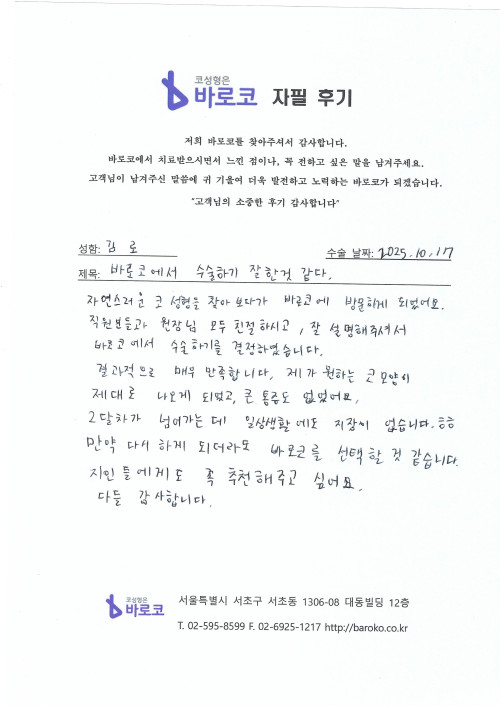 코성형은
바로코 자필 후기
저희 바로코를 찾아주셔서 감사합니다.
바로코에서 치료받으시면서 느낀 점이나, 꼭 전하고 싶은 말을 남겨주세요.
고객님이 남겨주신 말씀에 귀 기울여 더욱 발전하고 노력하는 바로코가 되겠습니다.
"고객님의 소중한 후기 감사합니다"
성함: 김 로 수술 날짜: 2025.10.17
제목: 바로코에서 수술하기 잘한것 같다.
자연스러운 코 성형을 찾아 보다가 바로코에 방문하게 되었어요.
직원분들과 원장님 모두 친절하시고, 잘 설명해주셔서
바로코에서 수술하기를 결정하였습니다.
결과적으로 매우 만족합니다. 제가 원하는 코모양이
제대로 나오게 되었고, 큰 통증도 없었어요.
2달차가 넘어가는 데 일상생활에도 지장이 없습니다. ㅎㅎ
만약 다시 하게 되더라도 바로코를 선택할 것 같습니다.
지인들에게도 꼭 추천해주고 싶어요.
다들 감사합니다.
코성형은
바로코
서울특별시 서초구 서초동 1306-08 대동빌딩 12층
T. 02-595-8599 F. 02-6925-1217 http://baroko.co.kr